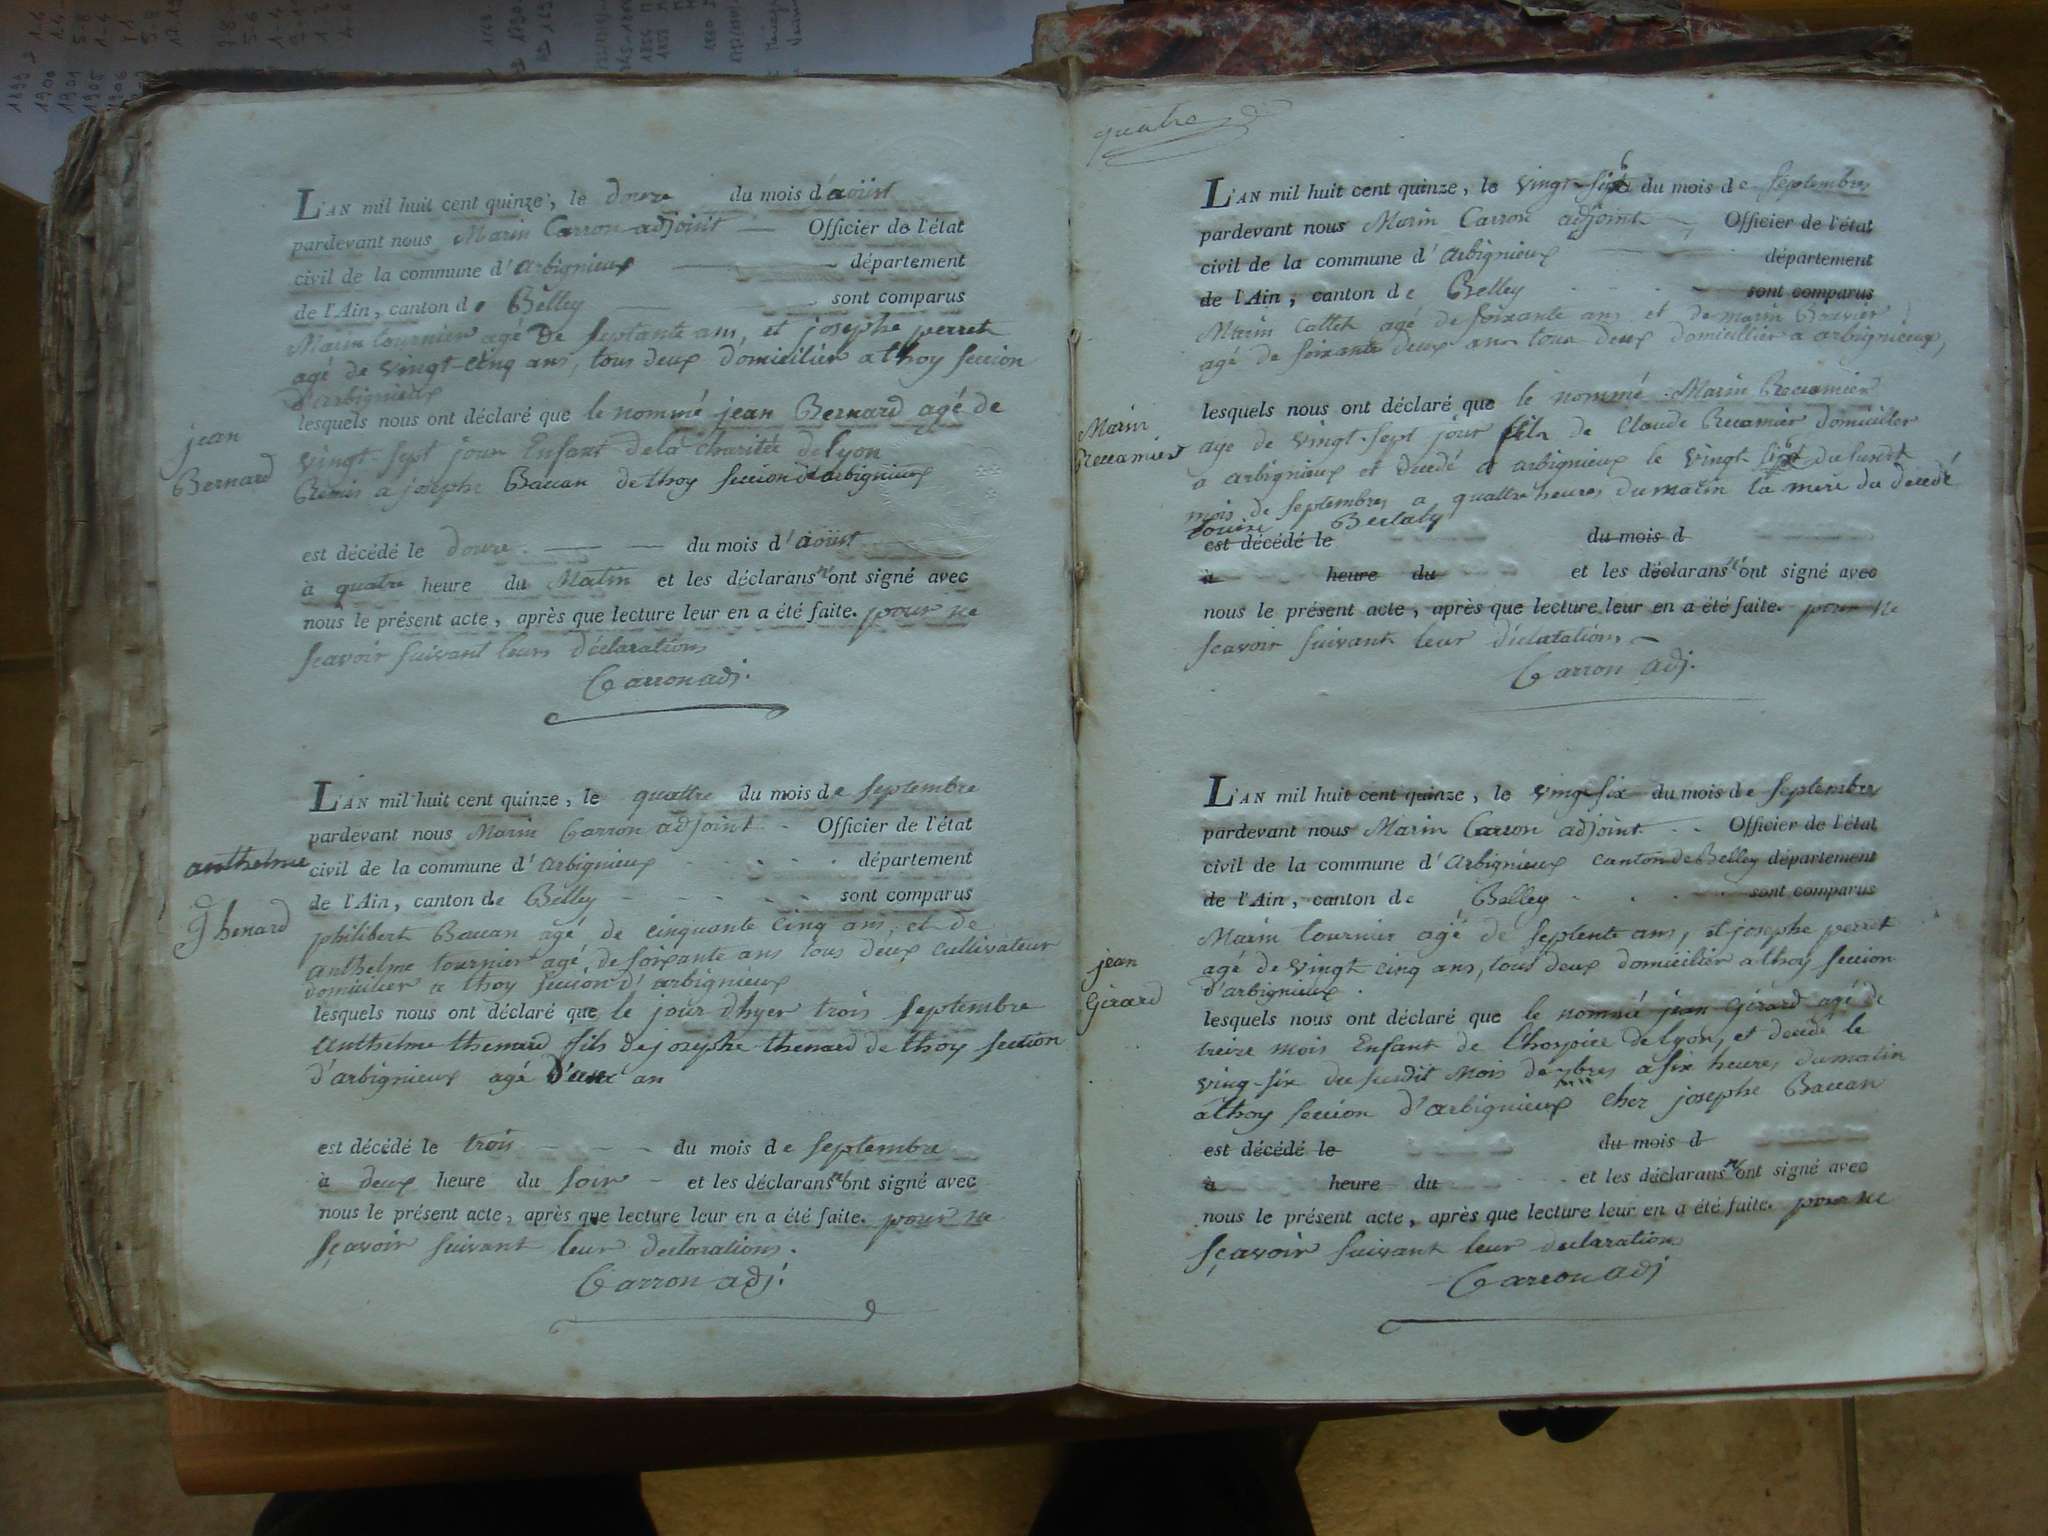 L'AN mil huit cent quinze, le douze du mois d'aoüst
pardevant nous Marin Carron adjoint Officier de l'état
civil de la commune d'arbignieux département
de l'Ain, canton de Belley sont comparus
Marin tournier agé De septante ans, et josephe perret
agé de vingt-cinq ans, tous deux domicilier a thoy section
d'arbignieux
lesquels nous ont déclaré que le nommé jean Bernard agé de
vingt-sept jour Enfant de la charitée de lyon
Remis a josephe Baccan de thoy section d'arbignieux
jean
Bernard
est décédé le douze du mois d'aoüst
à quatre heure du Matin et les déclarans n'ont signé avec
nous le présent acte, après que lecture leur en a été faite. pour ne
sçavoir suivant leurs déclarations
Carron adj.
L'AN mil huit cent quinze, le quattre du mois de septembre
pardevant nous Marin Carron adjoint Officier de l'état
civil de la commune d'arbignieux département
de l'Ain, canton de Belley sont comparus
philibert Baccan agé de cinquante cinq ans, et de
anthelme tournier agé de soixante ans tous deux cultivateur
domicilier a thoy section d'arbignieux
anthelme
thenard
lesquels nous ont déclaré que le jour d'hyer trois septembre
anthelme thenard fils de josephe thenard de thoy section
d'arbignieux agé d'un an
est décédé le trois du mois de septembre
à deux heure du soir et les déclarans n'ont signé avec
nous le présent acte, après que lecture leur en a été faite. pour ne
sçavoir suivant leur declarations.
Carron adj.
quatre
L'AN mil huit cent quinze, le vingt-six du mois de septembres
pardevant nous Marin Carron adjoint Officier de l'état
civil de la commune d'arbignieux département
de l'Ain, canton de Belley sont comparus
Marin Cattet agé de soixante ans et de marin Bouvier
agé de soixante deux ans tous deux domicillier a arbignieux,
lesquels nous ont déclaré que le nommé Marin Reccamier
age de vingt-sept jour fils de Claude Recamier domicilier
a arbignieux et decedé a arbignieux le vingt du susdit
mois de septembres a quattre heures du matin la mere du decedé
Marin
Reccamier
est décédé le du mois d
à heure du et les déclarans n'ont signé avec
nous le présent acte, après que lecture leur en a été faite. pour ne
sçavoir suivant leur déclarations
Carron adj.
L'AN mil huit cent quinze, le vingt-six du mois de septembres
pardevant nous Marin Carron adjoint Officier de l'état
civil de la commune d'arbignieux canton de Belley département
de l'Ain, canton de Belley sont comparus
Marin tournier agé de septente ans, et josephe perret
agé de vingt cinq ans, tous deux domicilier a thoy section
d'arbignieux.
jean
Gérard
lesquels nous ont déclaré que le nommé jean Gérard agé de
treize mois Enfant de lhospice de lyon, et decede le
ving-six du susdit mois de 7bres a six heures du matin
a thoy section d'arbignieux chez josephe Baccan
est décédé le du mois d
à heure du et les déclarans n'ont signé avec
nous le présent acte, après que lecture leur en a été faite. pour ne
sçavoir suivant leur declarations
Carron adj